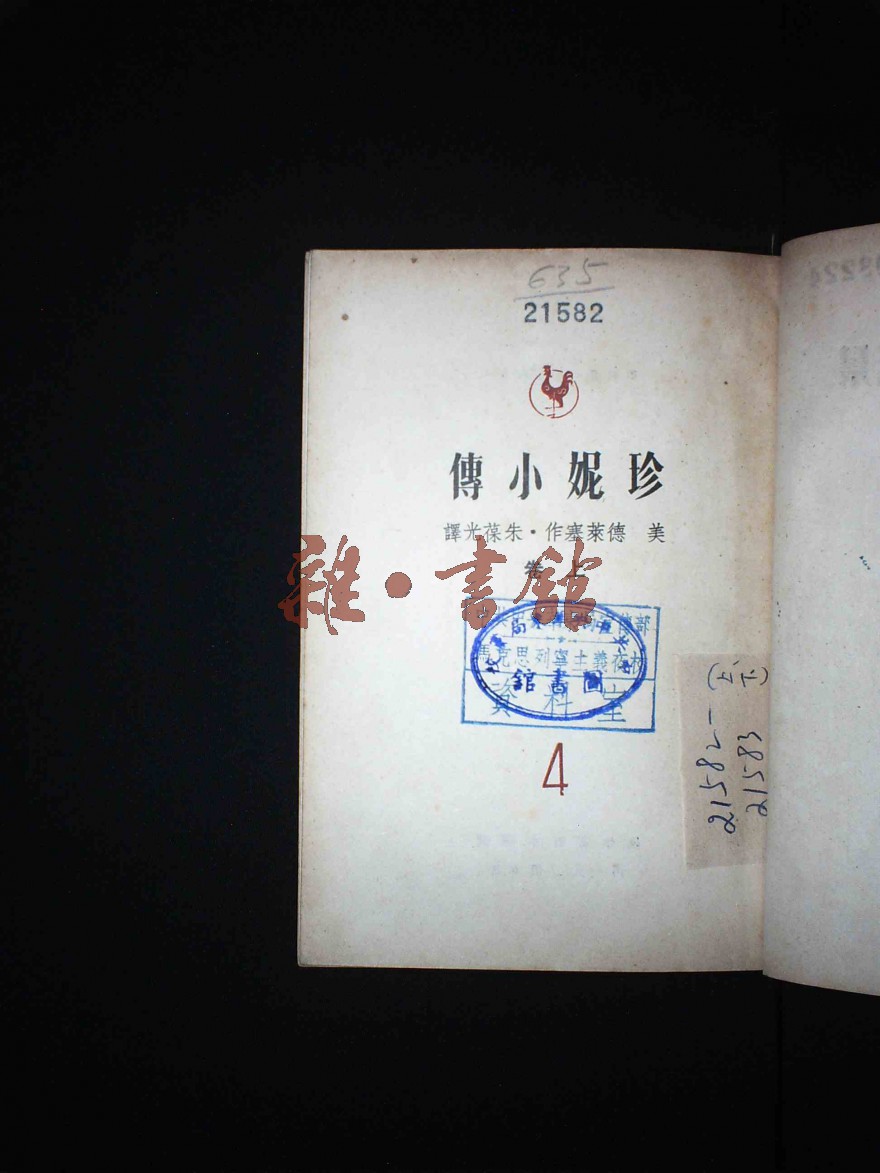 635
21582
珍妮小傳
美 德萊塞作·朱葆光譯
上卷
雜·書館
馬克思列寧主義夜校
資料室
圖書館
4
21582—(上、下)
21583